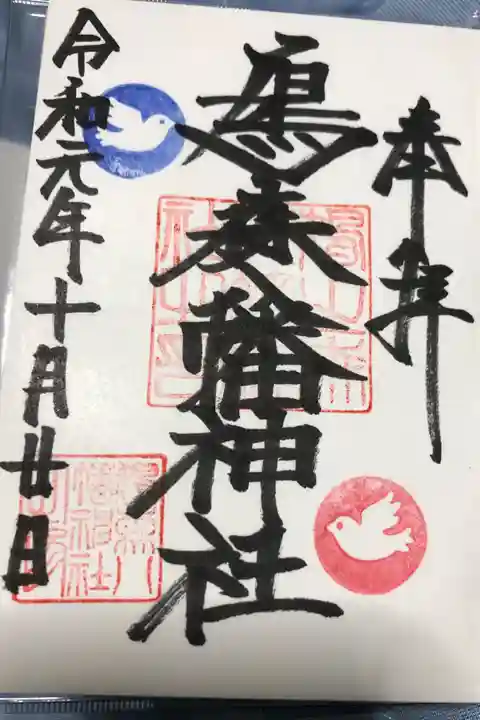 奉拝
八幡神社
令和元年十月廿日